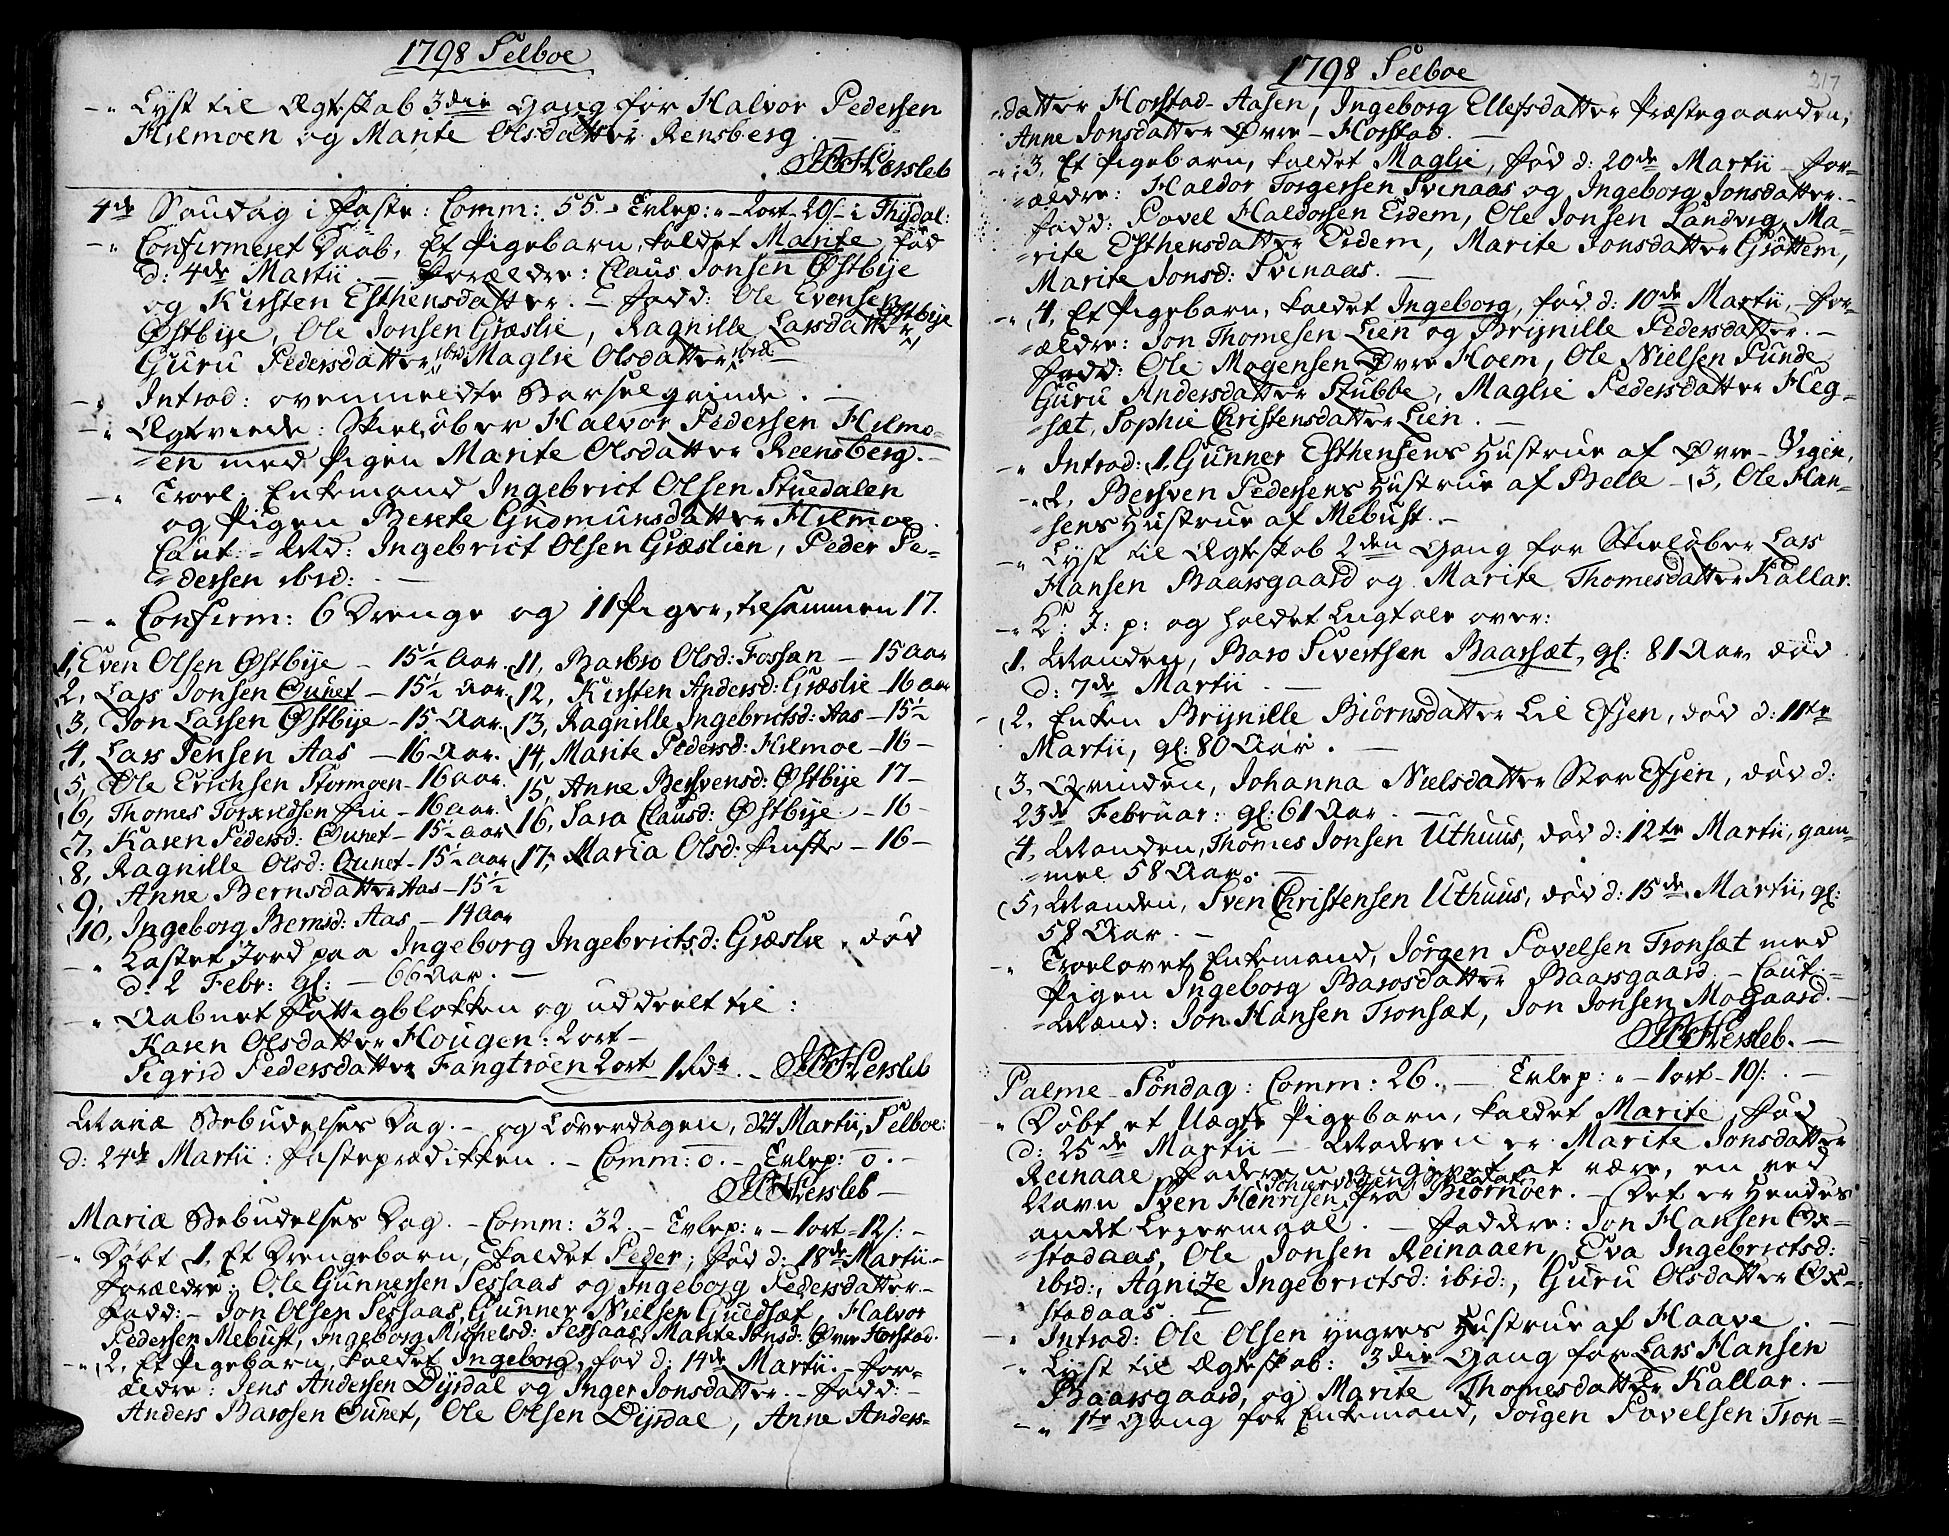 1798 Selboe
-" Lyst til Ægteskab 3die Gang for Halvor Pedersen
Hilmoen og Marite Olsdatter Rensberg. —
HHersleb
4de Søndag i Faste: Comm: 55 - Erlep: " - 2ort - 20/- i Thydal:
-" Confirmeret Daab, Et Pigebarn, kaldet Marite, fød
d: 4de Martii. — Forældre: Claus Jonsen Østbye
og Kirsten Esthensdatter. — Fadd: Ole Evensen Østbye
Østbye, Ole Jonsen Græslie, Ragnille Larsdatter
Guru Pedersdatter ibid Maglie Olsdatter ibid —
-" Introd: ovenmeldte Barselqvinde. —
-" Ægteviede: Skieløber Halvor Pedersen Hilmo-
=en med Pigen Marite Olsdatter Reensberg. -
-" Troel: Enkemand Ingebrict Olsen Stuedalen
og Pigen Berete Gudmunsdatter Hilmoe.
Caut: - Md: Ingebrict Olsen Græslien, Peder Pe-
=dersen ibid: —
-" Confirm: 6 Drenge og 11 Piger, tilsammen 17.
1, Even Olsen Østbye - 15½ Aar. 11, Barbro Olsd: Fossan - 15 aar
2, Lars Jonsen Ounet - 15½ Aar. 12, Kirsten Andersd: Græslie - 16 aar
3, Jon Larsen Østbye - 15 Aar. 13, Ragnille Ingebrictsd: Aas - 15½
4, Lars Jensen Aas - 16 Aar. 14, Marite Pedersd: Hilmoe - 16 -
5, Ole Erichsen Stormoen - 16 aar. 15, Anne Bersvensd: Østbye 17 -
6, Thomes Torkildsen Fin - 16 aar. 16, Sara Clausd: Østbye - 16 -
7, Karen Pedersd: Ounet - 15½ aar 17, Maria Olsd: Finste - 16 -
8, Ragnille Olsd: Ounet - 15½ aar
9, Anne Bernsdatter Aas - 15½
10, Ingeborg Bernsd: Aas - 14 aar
-" Kastet Jord paa Ingeborg Ingebrictsd: Græslie, død
d: 2 Febr: gl: — 66 Aar. —
-" Aabnet Fattigblokken og uddeelt til:
Karen Olsdatter Hougen: 2ort -
Sigrid Pedersdatter Fangtrøen 2ort 1 Rdr. - HHersleb
Mariæ Bebudelses Dag. - og Løverdagen, d 24 Martii, Selboe:
d: 24de Martii: Fasteprædikken. - Comm: o. - Erlep: o. -
HHersleb —
Mariæ Bebudelses Dag. - Comm: 32. - Erlep: " - 1ort - 12/: -
-" Døbt 1, Et Drengebarn, kaldet Peder, fød d: 18de Martii. -
Forældre: Ole Gunnersen Sessaas og Ingeborg Pedersdatter. -
Fadd: - Jon Olsen Sessaas, Gunner Nielsen Guldsæt, Halvor
Pedersen Mebust, Ingeborg Michelsd: Sessaas, Marite Jonsd: Øvre Horstad.
-" 2, Et Pigebarn, kaldet Ingeborg, fød d: 14de Martii. - For-
ældre: Jens Andersen Dyrdal og Inger Jonsdatter. - Fadd: -
Anders Barosen Ounet, Ole Olsen Dyrdal, Anne Anders-
1798 Selboe
217
datter Horstad-Aasen, Ingeborg Ellefsdatter Præstegaarden,
Anne Jonsdatter Øvre-Horstad. —
-" 3, Et Pigebarn, kaldet Maglie, fød d: 20de Martii - For-
=ældre: Haldor Torgersen Svinaas og Ingeborg Jonsdatter. -
Fadd: Povel Haldorsen Eidem, Ole Jonsen Landvig, Ma-
=rite Esthensdatter Eidem, Marite Jonsdatter Grøttem,
Marite Jonsd: Svinaas. —
-" 4, Et Pigebarn, kaldet Ingeborg, fød d: 10de Martii, - For-
=ældre: Jon Thomesen Lien og Brynille Pedersdatter. -
Fadd: Ole Mogensen Øvre Hoem, Ole Nielsen Sunde,
Guru Andersdatter Stubbe, Maglie Pedersdatter Heg-
=sæt, Sophie Christensdatter Lien. —
-" Introd: 1, Gunner Esthensens Hustrue af Øvre-Vigen,
-" 2, Bersven Pedersens Hustrue af Belle - 3, Ole Han-
=sens Hustrue af Mebust. -
-" Lyst til Ægteskab 2den Gang for Skieløber Lars
Hansen Baarsgaard og Marite Thomesdatter Kallar.
-" K: J: p: og holdet Liigtale over:
1, Manden, Baro Sivertsen Baarsæt, gl: 81 Aar, død
d: 7de Martii. —
2, Enken Brynille Biørnsdatter Lil Efsen, død d: 11te
Martii, gl: 80 Aar. —
3, Qvinden, Johanna Nielsdatter Stor Efsen, død d:
23de Februar: gl: 61 Aar. —
4, Manden, Thomes Jonsen Uthuus, død d: 12te Martii, gam-
=mel 58 Aar. -
5, Manden, Sven Christensen Uthuus, død d: 15de Martii, gl:
58 Aar. -
-" Troelovet Enkemand, Jørgen Povelsen Tronsæt med
Pigen Ingeborg Barosdatter Baarsgaard. - Caut: =
=Mænd: Jon Hansen Tronsæt, Jon Jonsen MoGaard. -
HHersleb. —
Palme-Søndag: Comm: 26. — Erlep: " - 1ort - 10/: -
" Døbt et Uægte Pigebarn, kaldet Marite, fød
d: 25de Martii — Moderen er Marite Jonsdatter
Reinaae, Faderen angivet at være, en ved
Navn Sven Henrisen, fra Biørnøer. - Det er Hendes
andet Leiermaal. — Faddre: Jon Hansen Ox-
=stadaas, Ole Jonsen Reinaaen, Eva Ingebrictsd:
ibid:, Agnize Ingebrictsd: ibid:, Guru Olsdatter Ox-
stadaas. —
-" Introd: Ole Olsen yngres Hustrue af Haave. —
-" Lyst til Ægteskab: 3die Gang for Lars Hansen
Baarsgaard, og Marite Thomesdatter Kallar. —
-" 1te Gang for Enkemand, Jørgen Povelsen Tron=